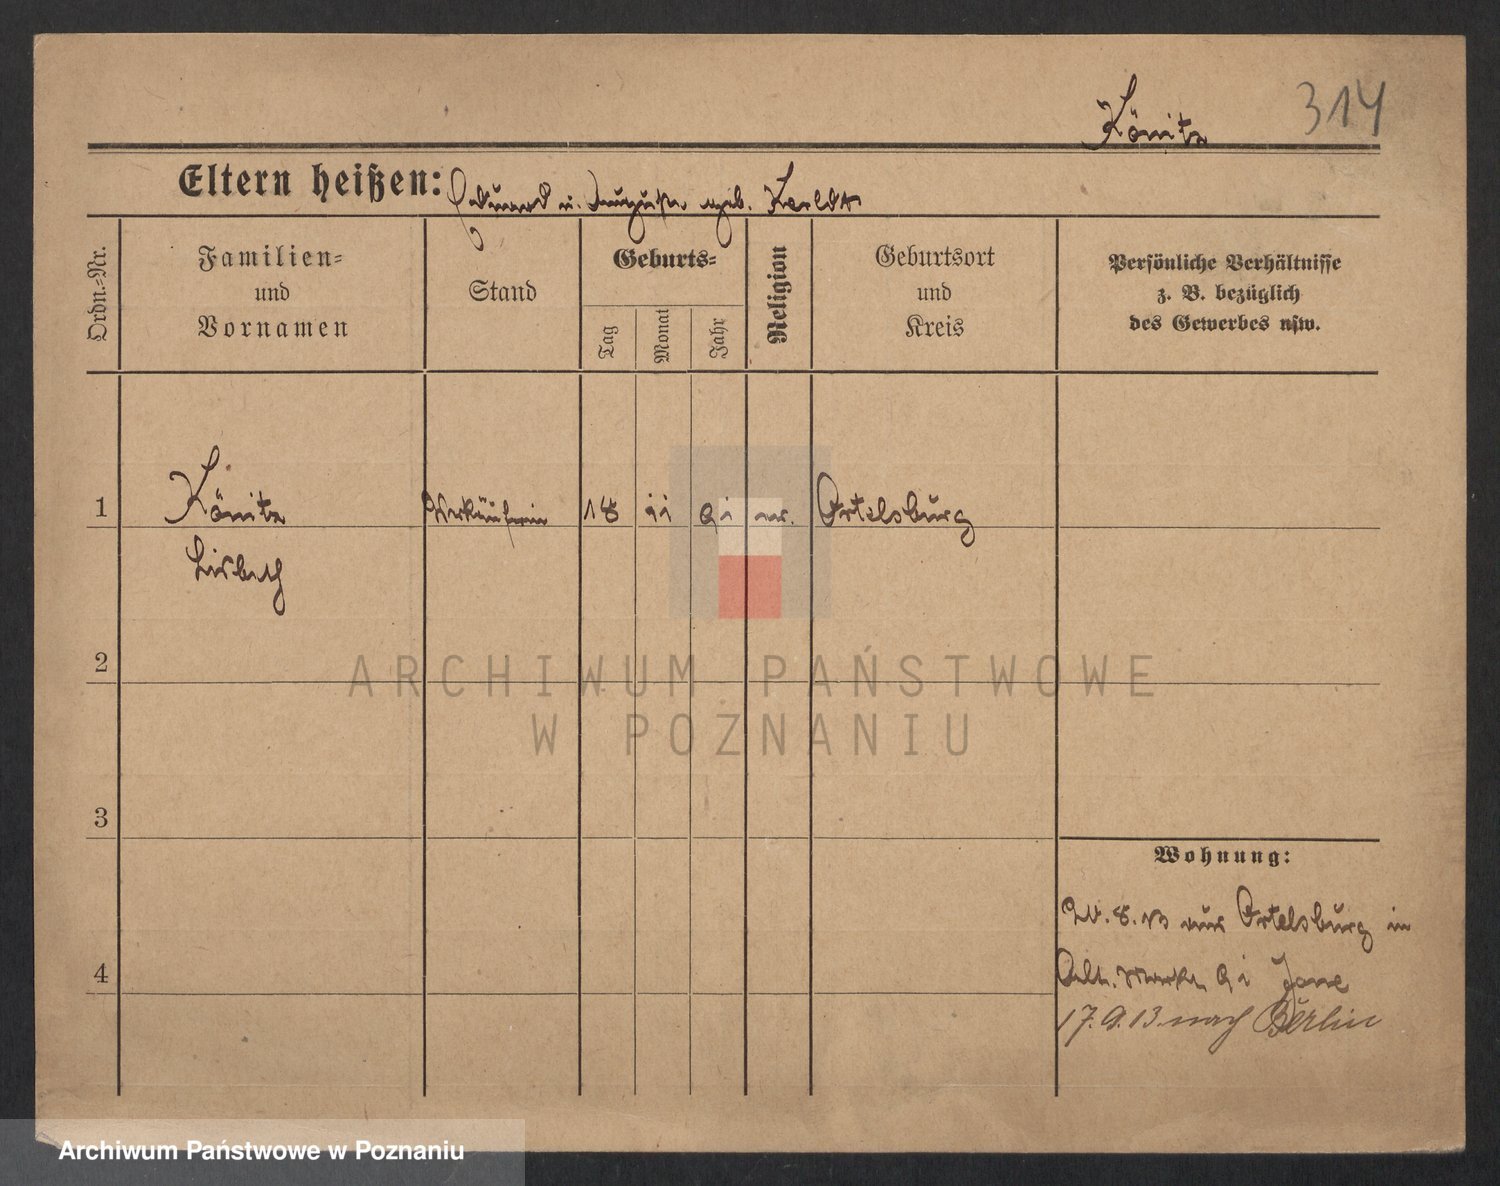 314
Könitz
Eltern heißen: Eduard u. Auguste geb.
Ordn.-Nr.
Familien-
und
Vornamen
Stand
Geburts-
Tag
Monat
Jahr
Religion
Geburtsort
und
Kreis
Persönliche Verhältnisse
z. B. bezüglich
des Gewerbes usw.
1
Könitz
Verkäuferin
18
11
91
ev.
Ortelsburg
Lisbeth
2
ARCHIWUM PAŃSTWOWE
W POZNANIU
3
Wohnung:
8. 13 aus Ortelsburg in
4
Alt. Markt 91
17.9.13 nach Berlin
Archiwum Państwowe w Poznaniu